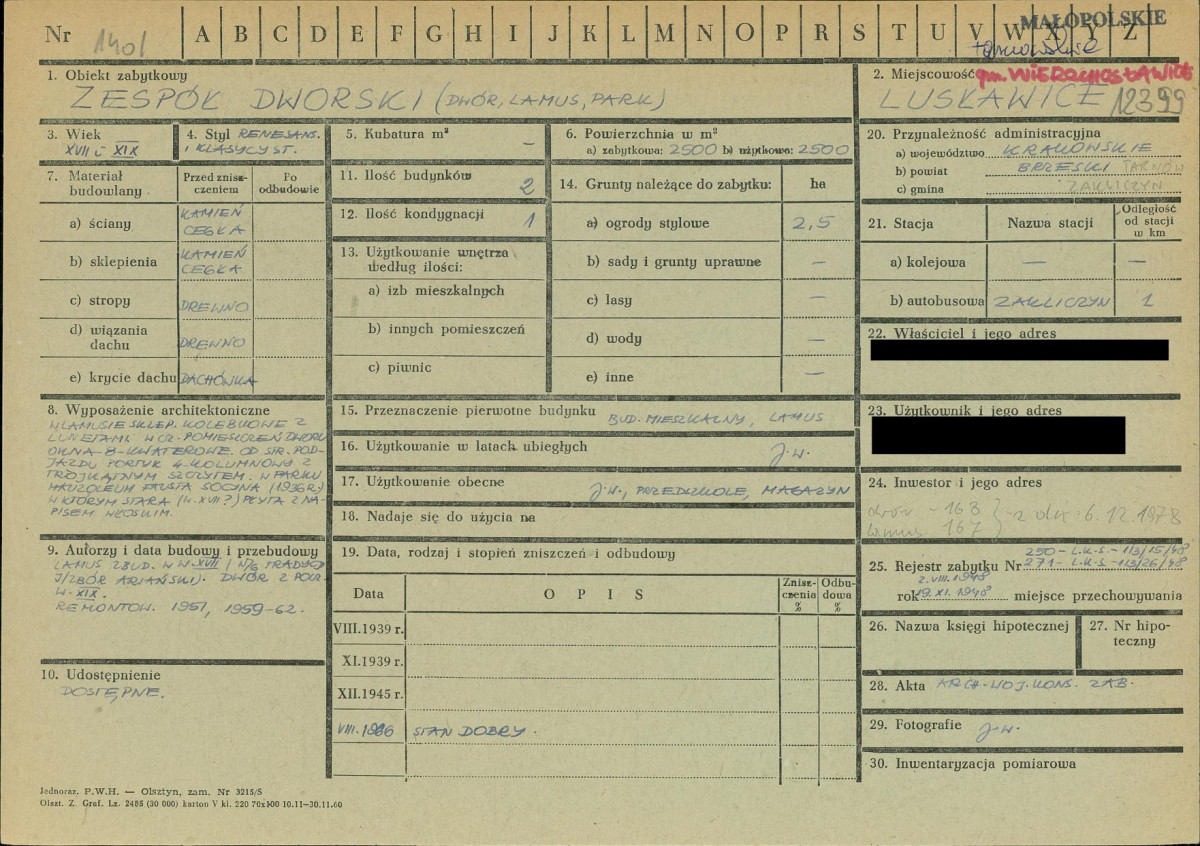 Nr 1401 A B C D E F G H I J K L M N O P R S T U V W X Y Z
MAŁOPOLSKIE
tarnowskie
gm. WIERZCHOSŁAWICE
1. Obiekt zabytkowy
ZESPÓŁ DWORSKI (DWÓR, LAMUS, PARK)
2. Miejscowość
LUSŁAWICE 12399
3. Wiek
XVII i XIX
4. Styl RENESANS.
I KLASYCYST.
5. Kubatura m²
—
6. Powierzchnia w m²
a) zabytkowa: 2500 b) użytkowa: 2500
7. Materiał budowlany
Przed zniszczeniem
Po odbudowie
a) ściany KAMIEŃ CEGŁA
b) sklepienia KAMIEŃ CEGŁA
c) stropy DREWNO
d) wiązania dachu DREWNO
e) krycie dachu DACHÓWKA
8. Wyposażenie architektoniczne
W LAMUSIE SKLEP. KOLEBKOWE Z
LUNETAMI. W CZ. POMIESZCZEŃ DWORU
OKNA-8-KWATEROWE. OD STR. POD-
JAZDU PORTYK 4-KOLUMNOWY Z
TRÓJKĄTNYM SZCZYTEM. W PARKU
MAUZOLEUM FAUSTA SOCYNA (1936R.)
W KTÓRYM STARA (W. XVII?) PŁYTA Z NA-
PISEM WŁOSKIM.
9. Autorzy i data budowy i przebudowy
LAMUS ZBUD. W W. XVII / WG TRADYCJI/ZBÓR ARIAŃSKI). DWÓR Z POCZ.
W. XIX.
REMONTOW. 1957, 1959-62.
10. Udostępnienie
DOSTĘPNE.
11. Ilość budynków 2
12. Ilość kondygnacji 1
13. Użytkowanie wnętrza
według ilości:
a) izb mieszkalnych
b) innych pomieszczeń
c) piwnic
14. Grunty należące do zabytku: ha
a) ogrody stylowe 2,5
b) sady i grunty uprawne —
c) lasy —
d) wody —
e) inne —
15. Przeznaczenie pierwotne budynku BUD. MIESZKALNY, LAMUS
16. Użytkowanie w latach ubiegłych J.w.
17. Użytkowanie obecne J.w., PRZEDSZKOLE, MAGAZYN
18. Nadaje się do użycia na
19. Data, rodzaj i stopień zniszczeń i odbudowy
Data O P I S Zniszczenia % Odbudowa %
VIII.1939 r.
XI.1939 r.
XII.1945 r.
VIII.1966 STAN DOBRY.
20. Przynależność administracyjna
a) województwo KRAKOWSKIE
b) powiat BRZESKI TARNÓW
c) gmina ZAKLICZYN
21. Stacja Nazwa stacji Odległość od stacji w km
a) kolejowa — —
b) autobusowa ZAKLICZYN 1
22. Właściciel i jego adres
23. Użytkownik i jego adres
24. Inwestor i jego adres
dwór - 168
lamus 167 } z dn. 6.12.1978
25. Rejestr zabytku Nr 250-L.K.S.-1/3/15/48
271-L.K.S.-1/3/26/48
2.VIII.1948
rok 19.XI.1948 miejsce przechowywania
26. Nazwa księgi hipotecznej
27. Nr hipoteczny
28. Akta ARCH. WOJ. KONS. ZAB.
29. Fotografie J.w.
30. Inwentaryzacja pomiarowa
Jednoraz. P.W.H. — Olsztyn, zam. Nr 3215/S
Olszt. Z. Graf. Lz. 2485 (30 000) karton V kl. 220 70x100 10.11—30.11.60